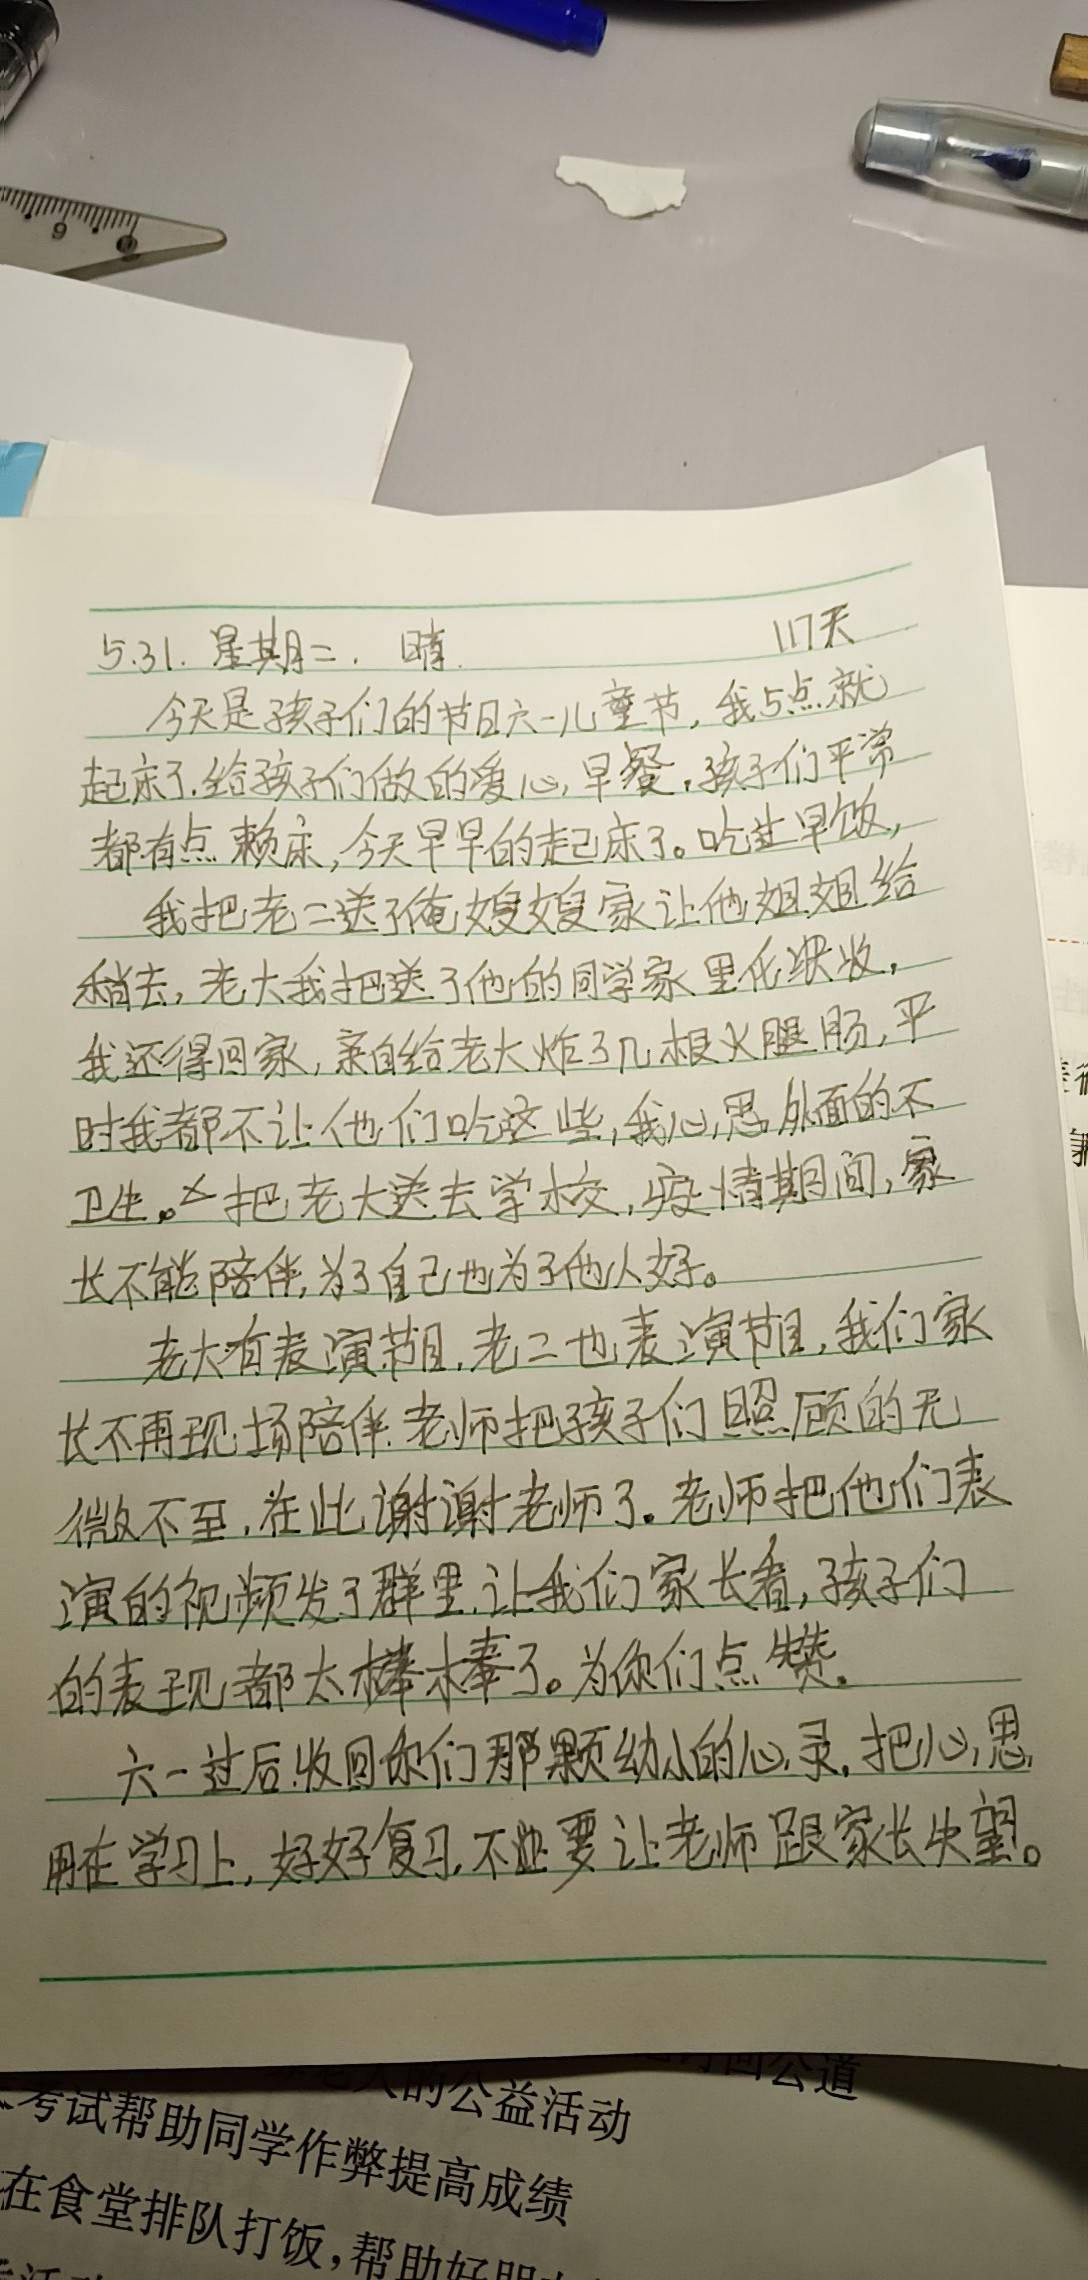 9
10
5.31. 星期二. 晴. 117天
今天是孩子们的节日六一儿童节, 我5点就
起床了.给孩子们做的爱心,早餐.孩子们平常
都有点赖床,今天早早的起床了。吃过早饭,
我把老二送了俺嫂嫂家让他姐姐给
稍去,老大我把送了他的同学家里化妆,
我还得回家,亲自给老大炸了几根火腿肠,平
时我都不让他们吃这些,我心思外面的不
卫生。把老大送去学校,疫情期间,家
长不能陪伴,为了自己也为了他人好。
老大有表演节目,老二也表演节目,我们家
长不再现场陪伴.老师把孩子们照顾的无
微不至,在此谢谢老师了。老师把他们表
演的视频发了群里.让我们家长看,孩子们
的表现都太棒棒了。为你们点赞.
六一过后.收回你们那颗幼小的心灵.把心思
用在学习上,好好复习,不要让老师跟家长失望。
老人的公益活动
考试帮助同学作弊提高成绩
在食堂排队打饭,帮助好朋